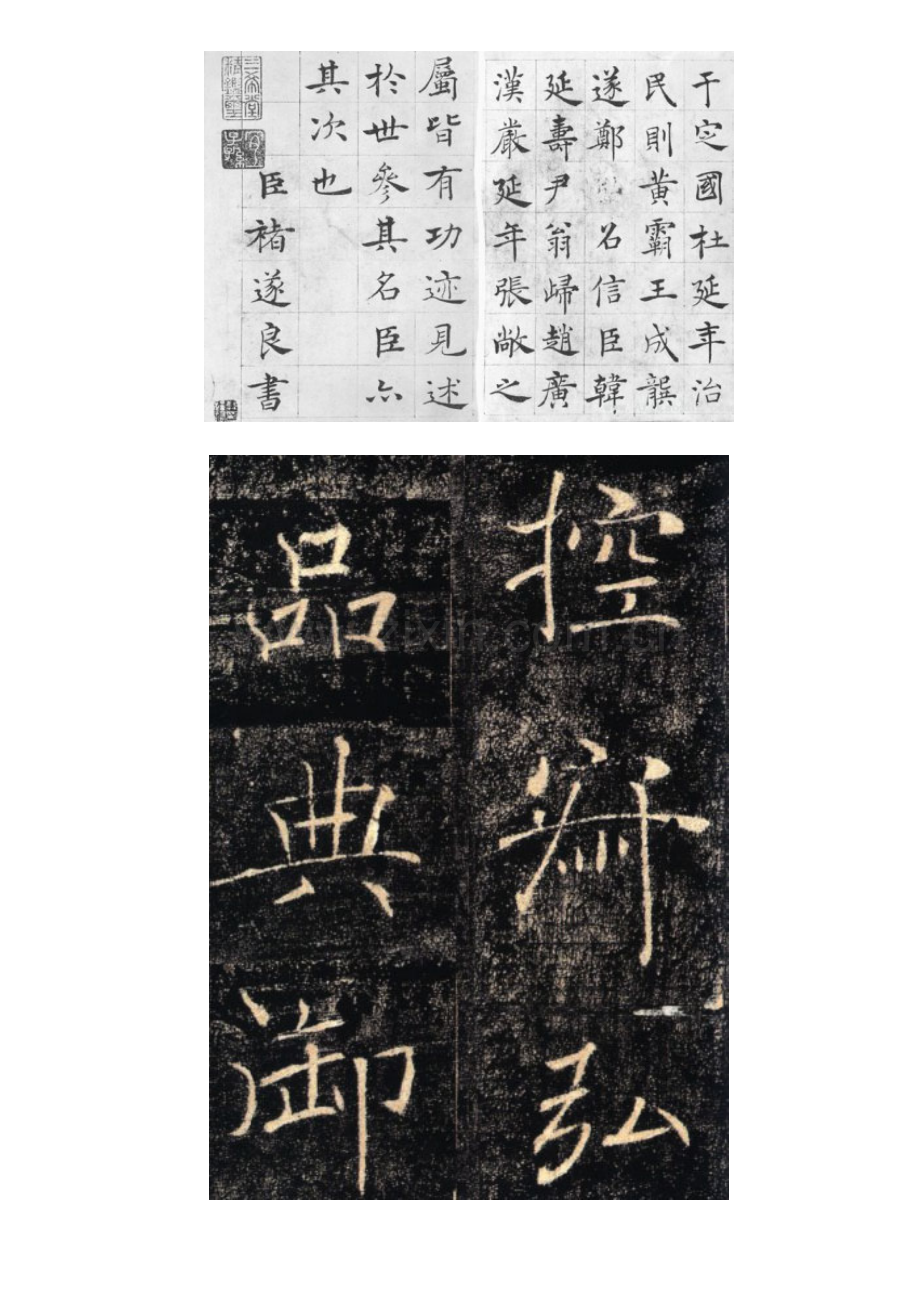 于定國杜延年治
民則黃霸王成龔
遂鄭召信臣韓
延壽尹翁歸趙廣
漢嚴延年張敞之
屬皆有功迹見述
於世參其名臣亦
其次也
臣褚遂良書
三希堂精鑑璽
宜子孫
控寂弘
品典御
www.zixin.com.cn